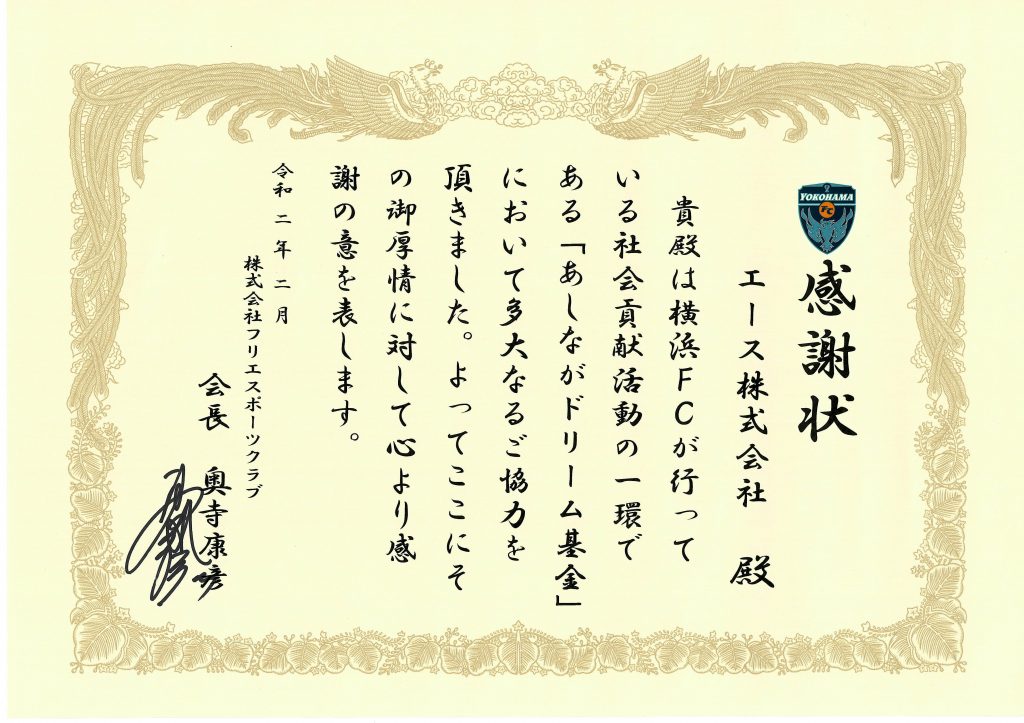 YOKOHAMA
FC
感謝状
エース株式会社 殿
貴殿は横浜FCが行って
いる社会貢献活動の一環で
ある「あしながドリーム基金」
において多大なるご協力を
頂きました。よってここにそ
の御厚情に対して心より感
謝の意を表します。
令和二年二月
株式会社フリエスポーツクラブ
会長 奥寺康彦